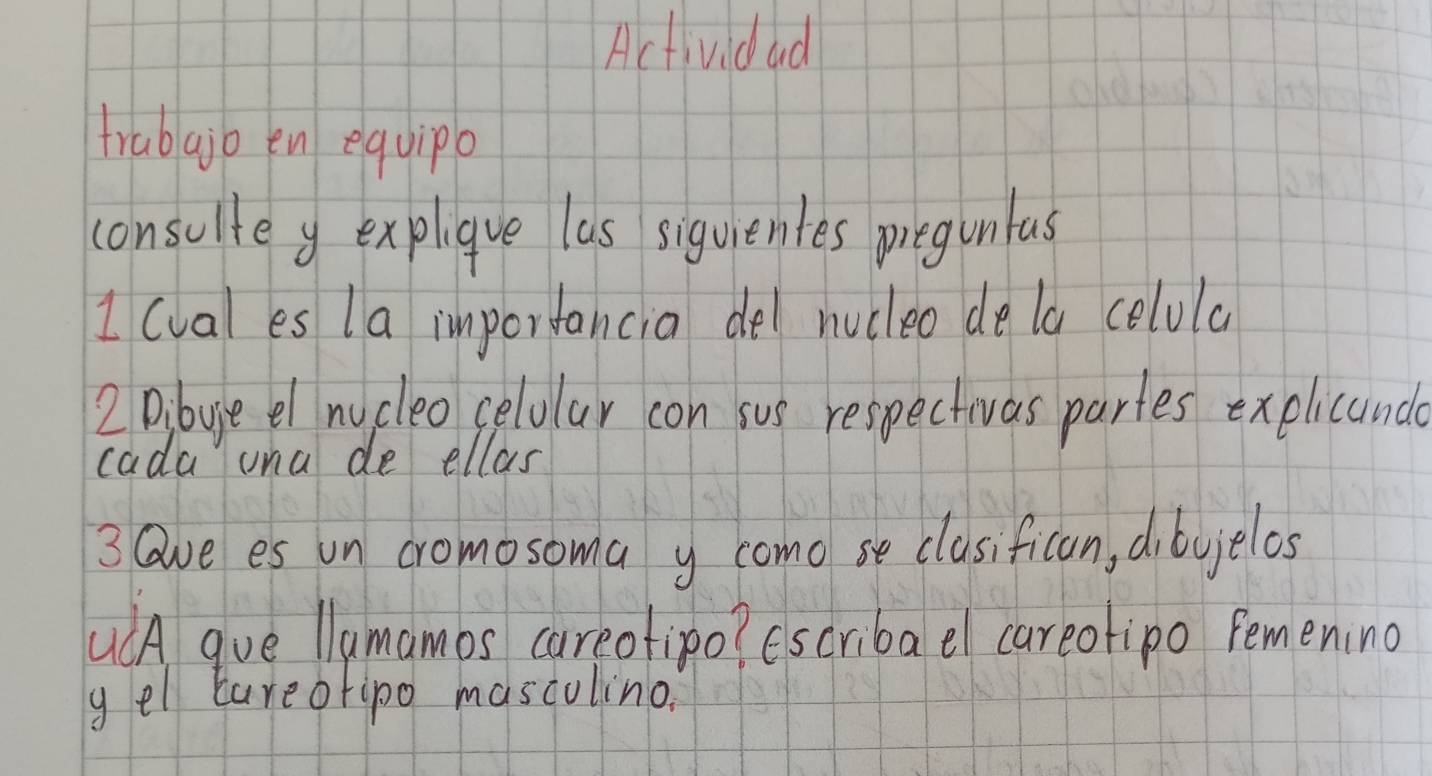 Actividad
trabajo en equipo
consulte y explique las siguientes preguntas
1 Cual es la importancia del nucleo de la celula
2 Dibuje el nucleo celular con sus respectivas partes explicando
cada una de ellas
3 Que es un cromosoma y como se clasifican, dibujelos
4 ¿A que llamamos careotipo? Escriba el careotipo femenino
y el careotipo masculino.